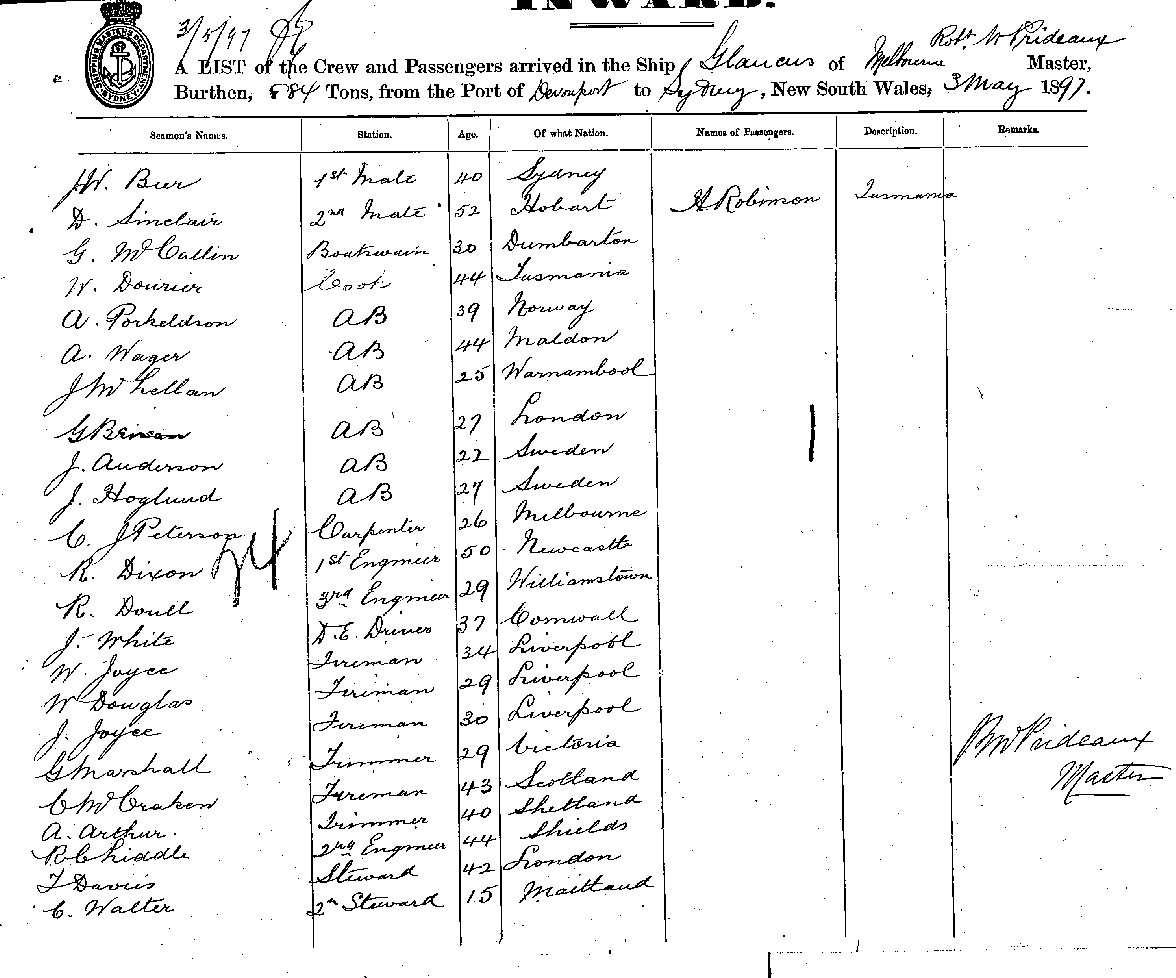 INWARD.
3/5/97
SHIPPING MASTERS DEPARTMENT SYDNEY
A LIST of the Crew and Passengers arrived in the Ship Glaucus of Melbourne Robt W Prideaux Master,
Burthen, 584 Tons, from the Port of Devonport to Sydney, New South Wales, 3 May 1897.
Seamen's Names. Station. Age. Of what Nation. Names of Passengers. Description. Remarks.
JW. Burr 1st Mate 40 Sydney
D. Sinclair 2nd Mate 52 Hobart A Robinson Tasmania
G. McCallin Boatswain 30 Dumbarton
W. Dourier Cook 44 Tasmania
A. Porkeldson AB 39 Norway
A. Wager AB 44 Maldon
J McLellan AB 25 Warnambool
G AB 27 London
J. Anderson AB 22 Sweden
J. Hoglund AB 27 Sweden
C. J Peterson Carpenter 26 Melbourne
R. Dixon 1st Engineer 50 Newcastle
24
R. Doull 3rd Engineer 29 Williamstown
J. White D.E. Driver 37 Cornwall
W. Joyce Fireman 34 Liverpool
W Douglas Fireman 29 Liverpool
J. Joyce Fireman 30 Liverpool
G Marshall Trimmer 29 Victoria
C McCraken Fireman 43 Scotland
A. Arthur. Trimmer 40 Shetland
R Chiddle 2nd Engineer 44 Shields
T Davies Steward 42 London
C. Walter 2nd Steward 15 Maitland
RW Prideaux
Master